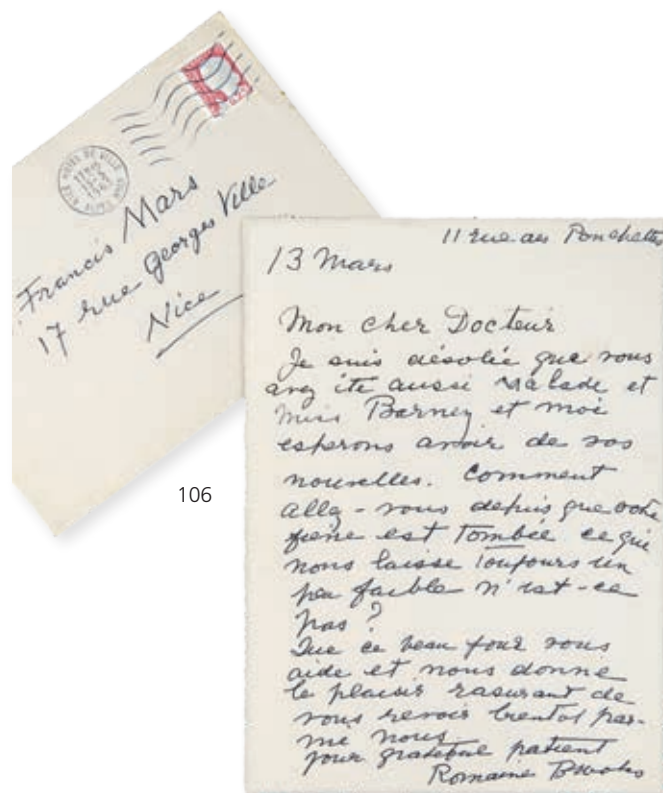 NICE HOTEL DE VILLE
Francis Mars
17 rue Georges Ville
Nice
106
11 rue des Ponchettes
13 Mars
Mon cher Docteur
Je suis désolée que vous
avez été aussi malade et
Miss Barney et moi
esperons avoir de vos
nouvelles. Comment
allez-vous depuis que votre
fièvre est tombée ce qui
nous laisse toujours un
peu faible n'est-ce
pas?
Que ce beau jour vous
aide et nous donne
le plaisir rasurant de
vous revoir bientot par-
mi nous.
your grateful patient
Romaine Brooks